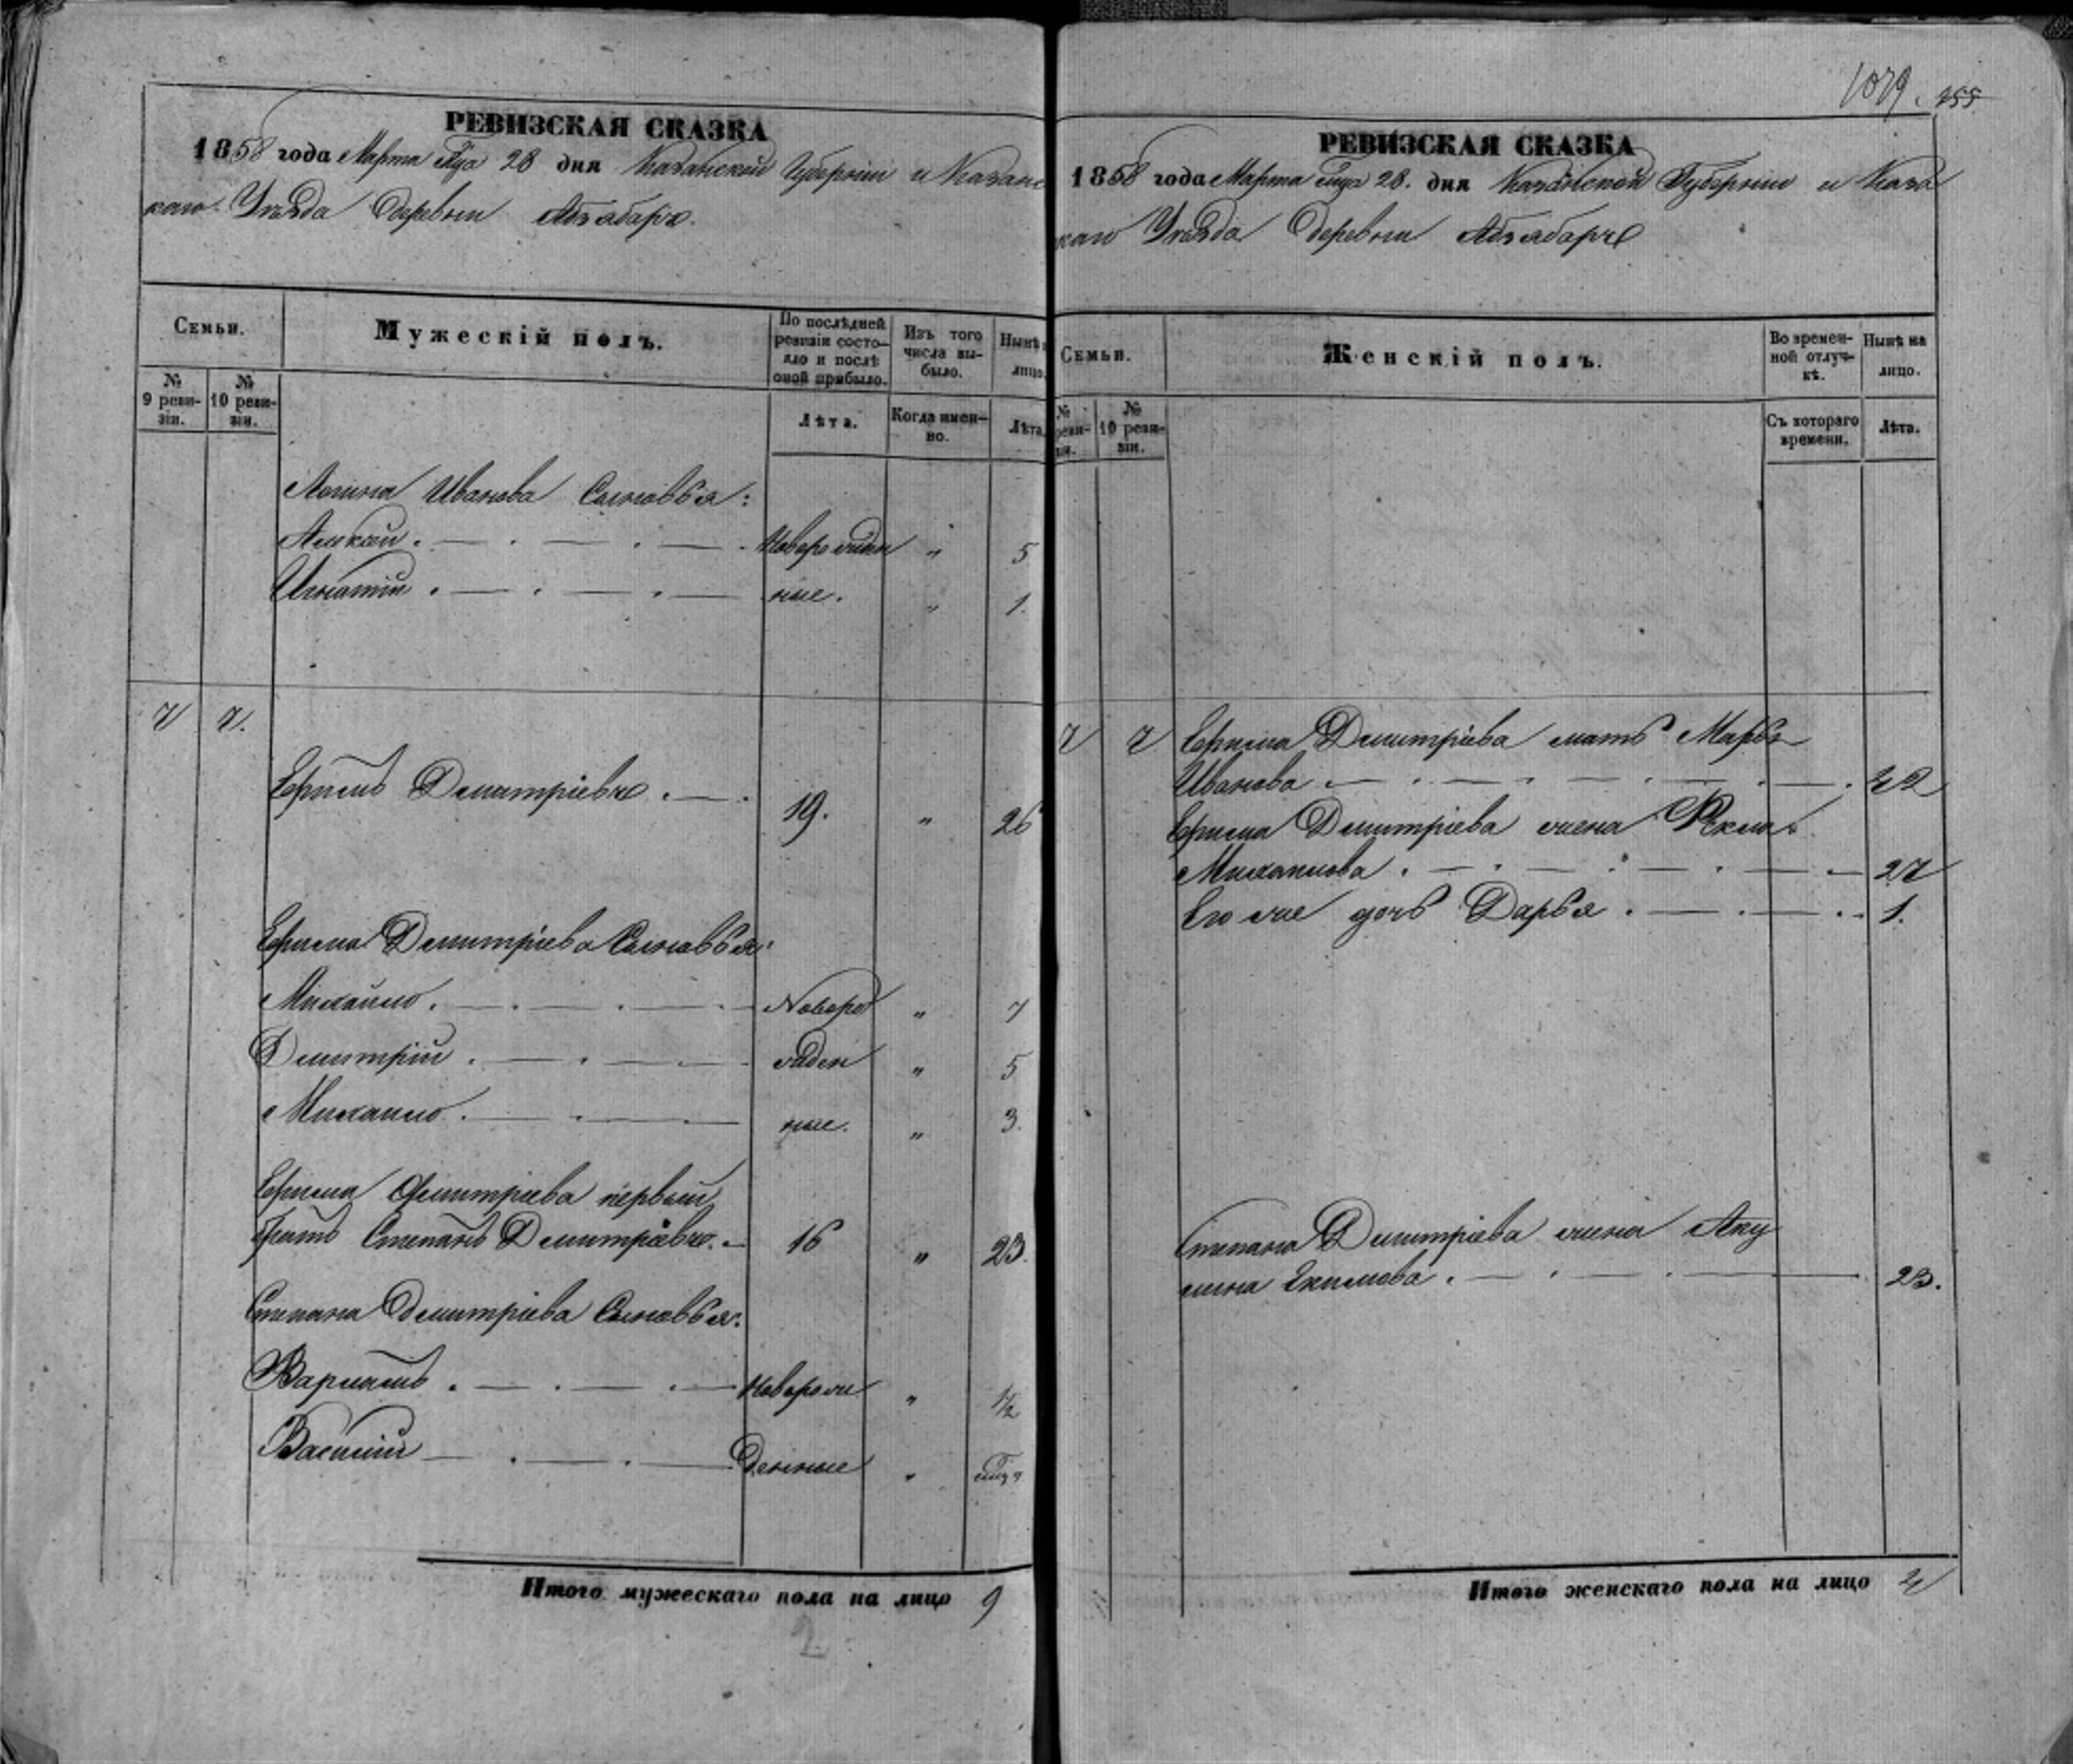 РЕВИЗСКАЯ СКАЗКА
1858 года Марта м-ца 28 дня Казанской Губернии и Казанс
каго Уезда деревни
Семьи.
Мужескій полъ.
По послѣдней ревизіи состояло и послѣ оной прибыло.
Изъ того числа выбыло.
Нынѣ
лицо.
№ 9 ревизіи.
№ 10 ревизіи.
Лѣта.
Когда именно.
Лѣта.
Логина Иванова Сыновья:
Новорожден " 5
Игнатій ные. " 1.
7 7.
Ефимъ Дмитріевъ 19. " 26
Ефима Дмитріева Сыновья:
Михайло. Новоро " 7
Дмитрій жден " 5
Михайло. ные. " 3.
Ефима Дмитріева первый
братъ Степанъ Дмитріевъ. 16 " 23.
Степана Дмитріева Сыновья:
Варламъ Новорож " 1/2
Василій денные "
Итого мужескаго пола на лицо 9
2
1079. 155
РЕВИЗСКАЯ СКАЗКА
1858 года Марта м-ца 28. дня Казанской Губерніи и Каза
каго Уезда деревни
Семьи.
Женскій полъ.
Во временной отлучкѣ.
Нынѣ на лицо.
№ реви-
зіи.
№ 10 ревизіи.
Съ котораго времени.
Лѣта.
7 7 Ефима Дмитріева мать Марья
Иванова 42
Ефима Дмитріева жена Фекла
Михайлова 27
Его же дочь Дарья 1.
Степана Дмитріева жена Аку
лина Екимова 23.
Итого женскаго пола на лицо 4